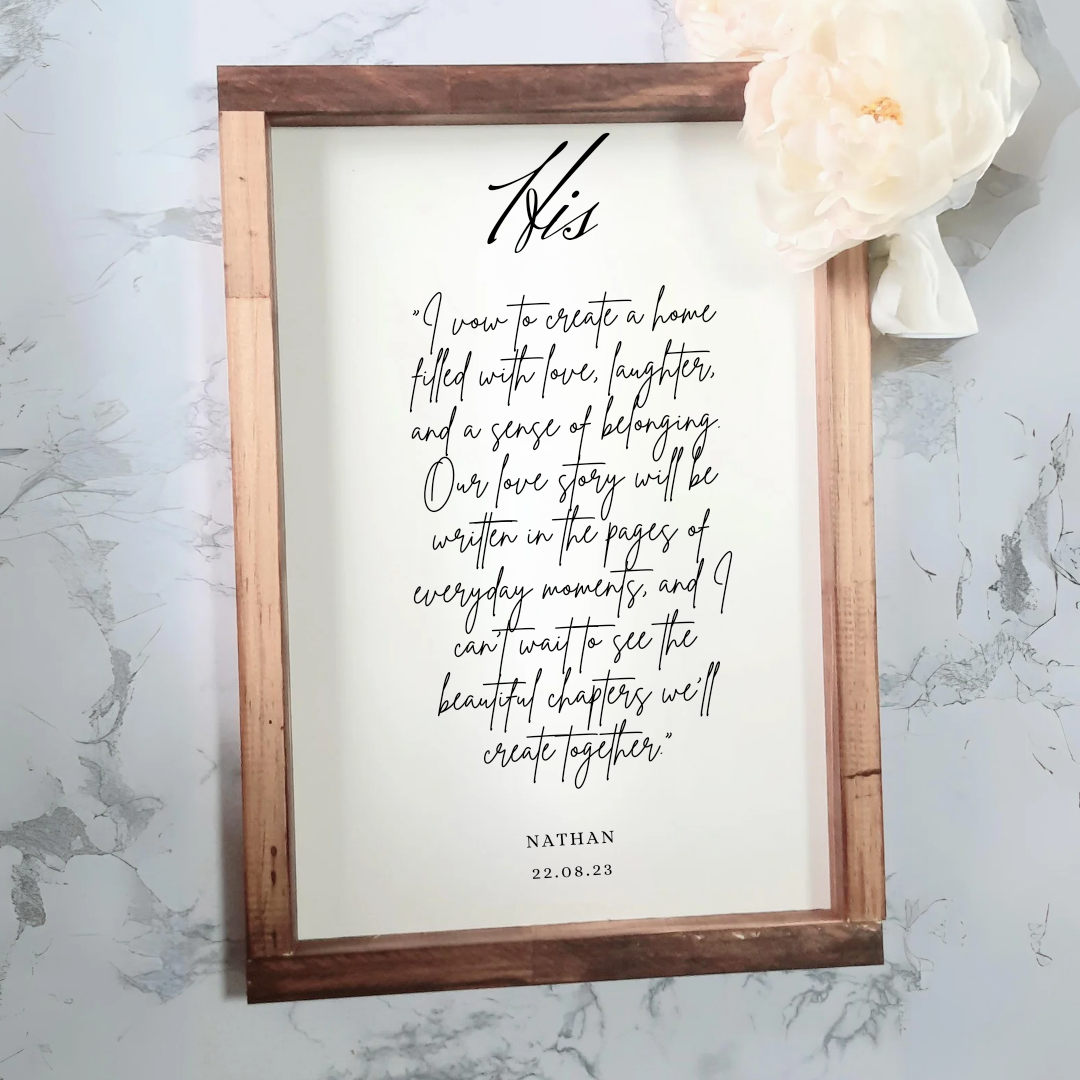 His
"I vow to create a home
filled with love, laughter,
and a sense of belonging.
Our love story will be
written in the pages of
everyday moments, and I
can't wait to see the
beautiful chapters we'll
create together."
NATHAN
22.08.23